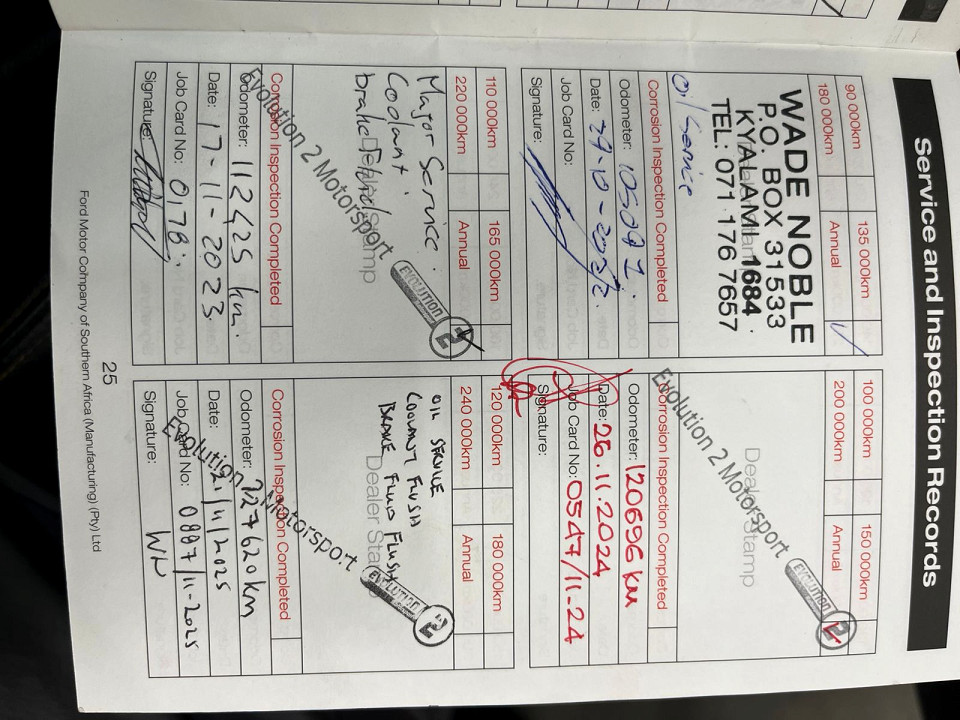 Service and Inspection Records
90 000km 135 000km
180 000km Annual ✓
WADE NOBLE
P.O. BOX 31533
KYALAMI 1684
TEL: 071 176 7657
Oil Service
Corrosion Inspection Completed
Odometer:
Date:
Job Card No:
Signature:
100 000km 150 000km
200 000km Annual ✓
Dealer Stamp
Evolution 2 Motorsport
EVOLUTION 2
Corrosion Inspection Completed
Odometer: 120696 km
Date: 26.11.2024
Job Card No: 0547/11-24
Signature:
110 000km 165 000km
220 000km Annual ✓
Major Service
Coolant
brake Fluid
Dealer Stamp
Evolution 2 Motorsport
EVOLUTION 2
Corrosion Inspection Completed
Odometer: 112425 km
Date: 17-11-2023
Job Card No: 0178
Signature:
120 000km 180 000km
240 000km Annual
OIL SERVICE
COOLANT FLUSH
BRAKE FLUID FLUSH
Dealer Stamp
Evolution 2 Motorsport
EVOLUTION 2
Corrosion Inspection Completed
Odometer: 127620 km
Date: 21/11/2025
Job Card No: 0887/11-2025
Signature: WN
25
Ford Motor Company of Southern Africa (Manufacturing) (Pty) Ltd